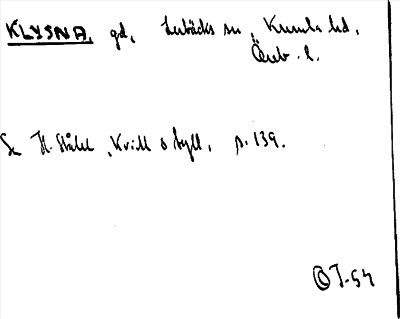 KLYSNA, gd, Lerbäcks sn, Kumla hd,
Öreb. l.
Se H. Ståhl, Kvill o tyll, s. 139.
OJ-54